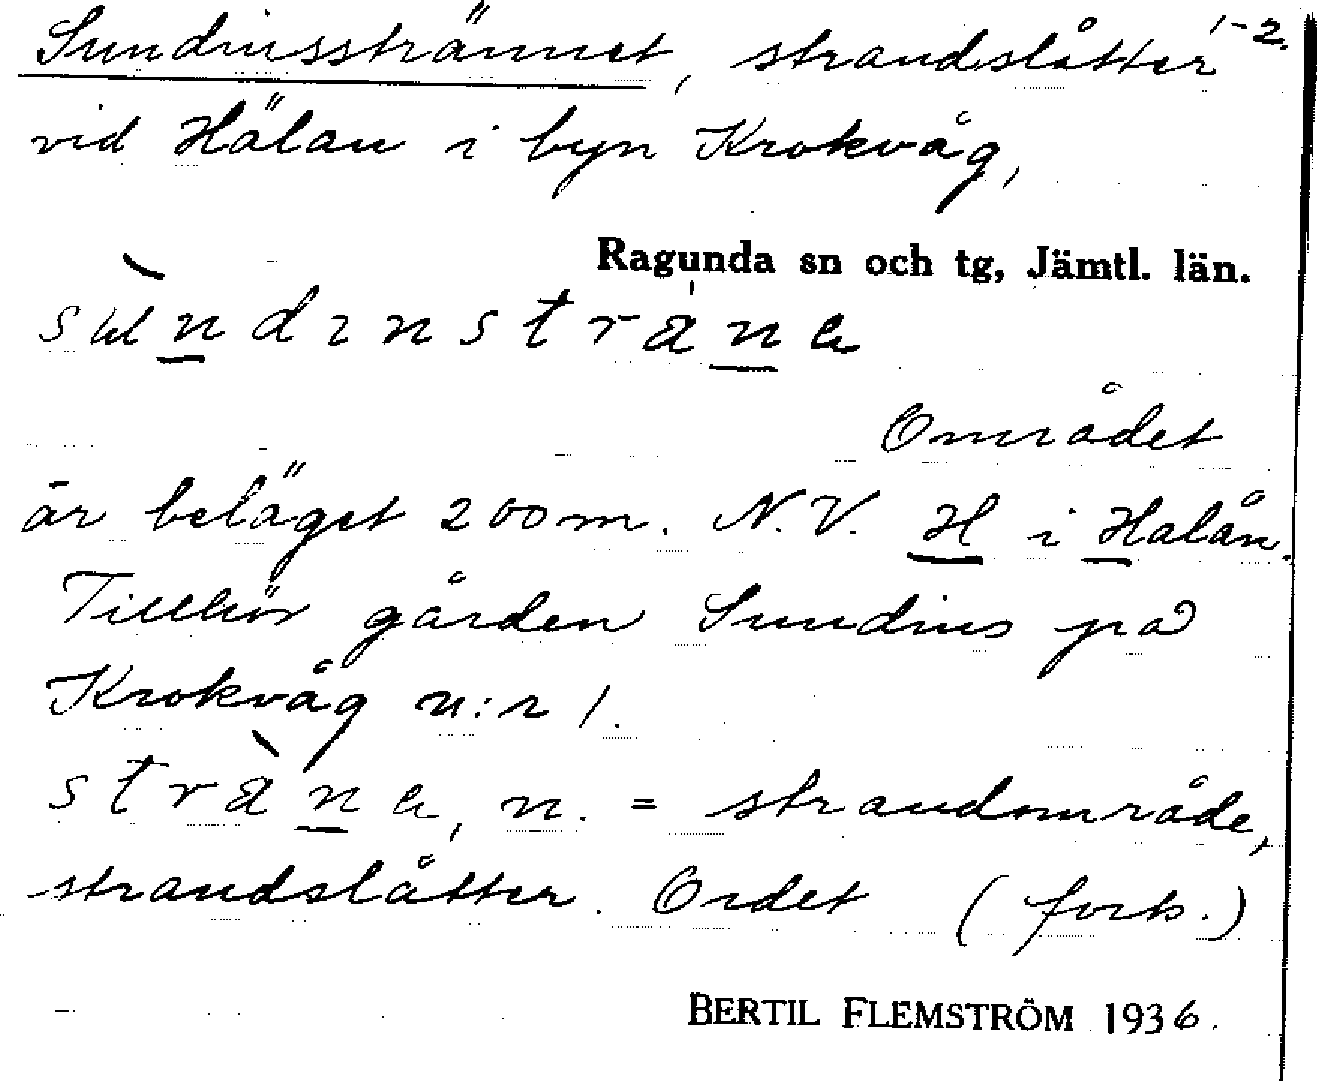 Sundinsstrännet, strandslåtter 1-2.
vid Hälan i byn Krokvåg,
Ragunda sn och tg, Jämtl. län.
sundinstrana
Området
är beläget 200 m. N.V. H i Halån.
Tillhör gården Sundins på
Krokvåg n:r 1.
strana, n. = strandområde,
strandslåtter. Ordet (forts.)
BERTIL FLEMSTRÖM 1936.